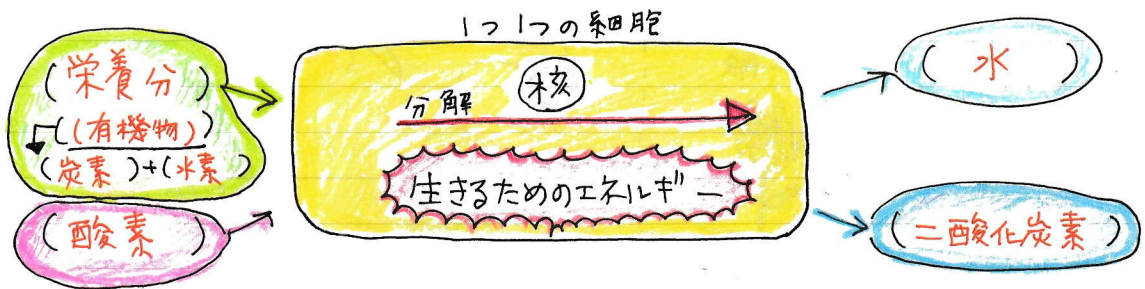 1つ1つの細胞
(栄養分)
((有機物))
(炭素)+(水素)
(酸素)
核
分解
生きるためのエネルギー
(水)
(二酸化炭素)